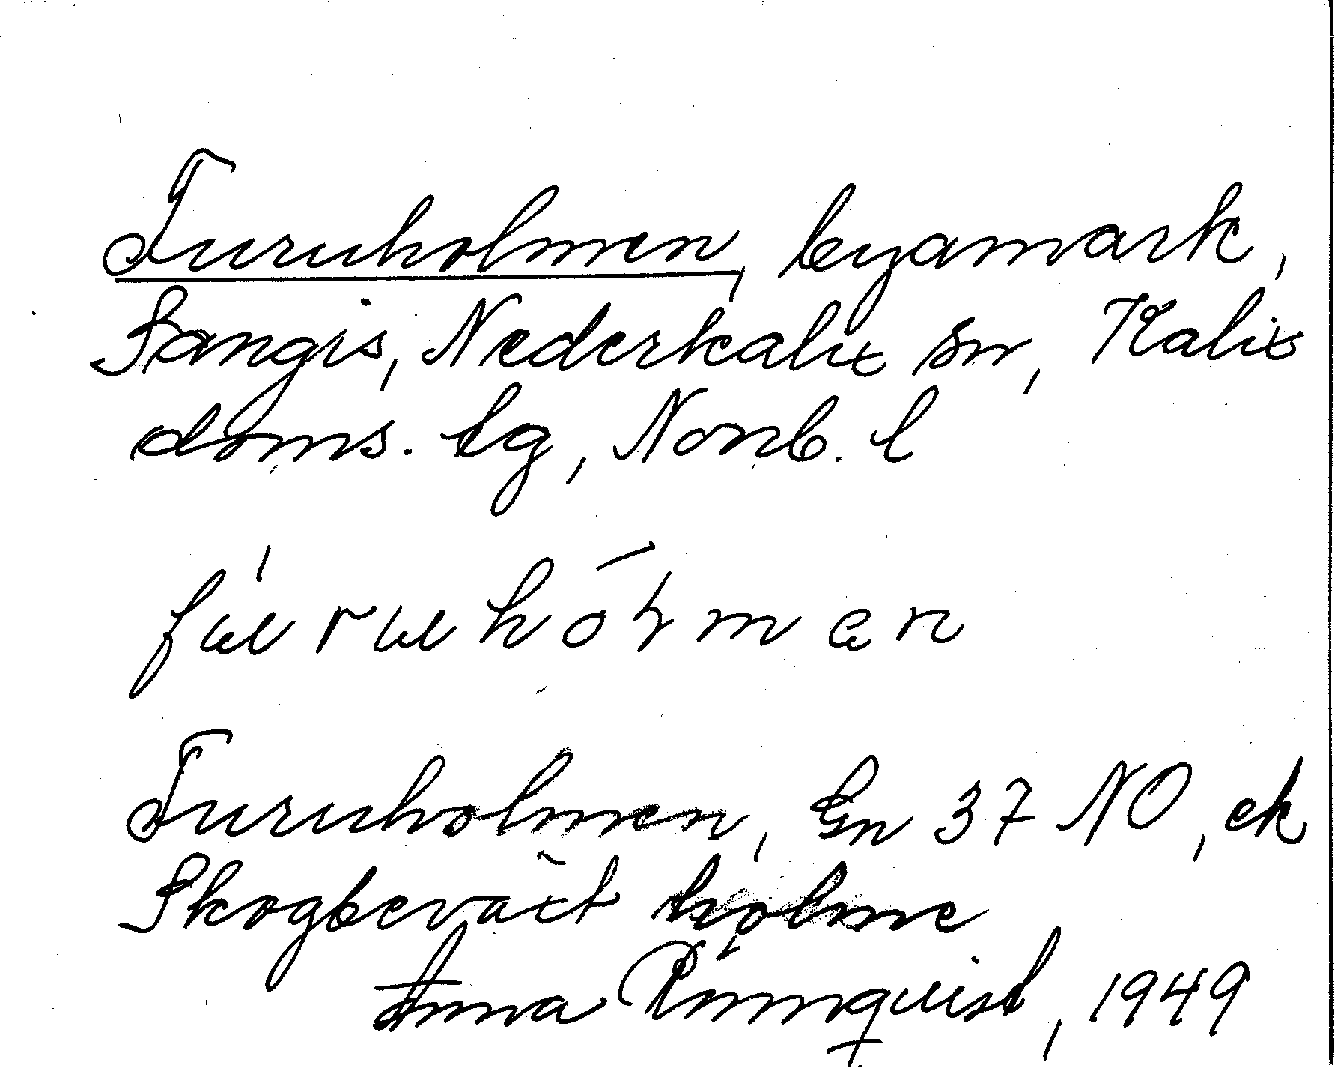 Furuholmen, byamark,
Sangis, Nederkalix sn, Kalix
doms. lg, Norrb. l
Furuholmen, Gn 37 NO, ek
Skogbeväxt holme
Anna Rönnquist, 1949